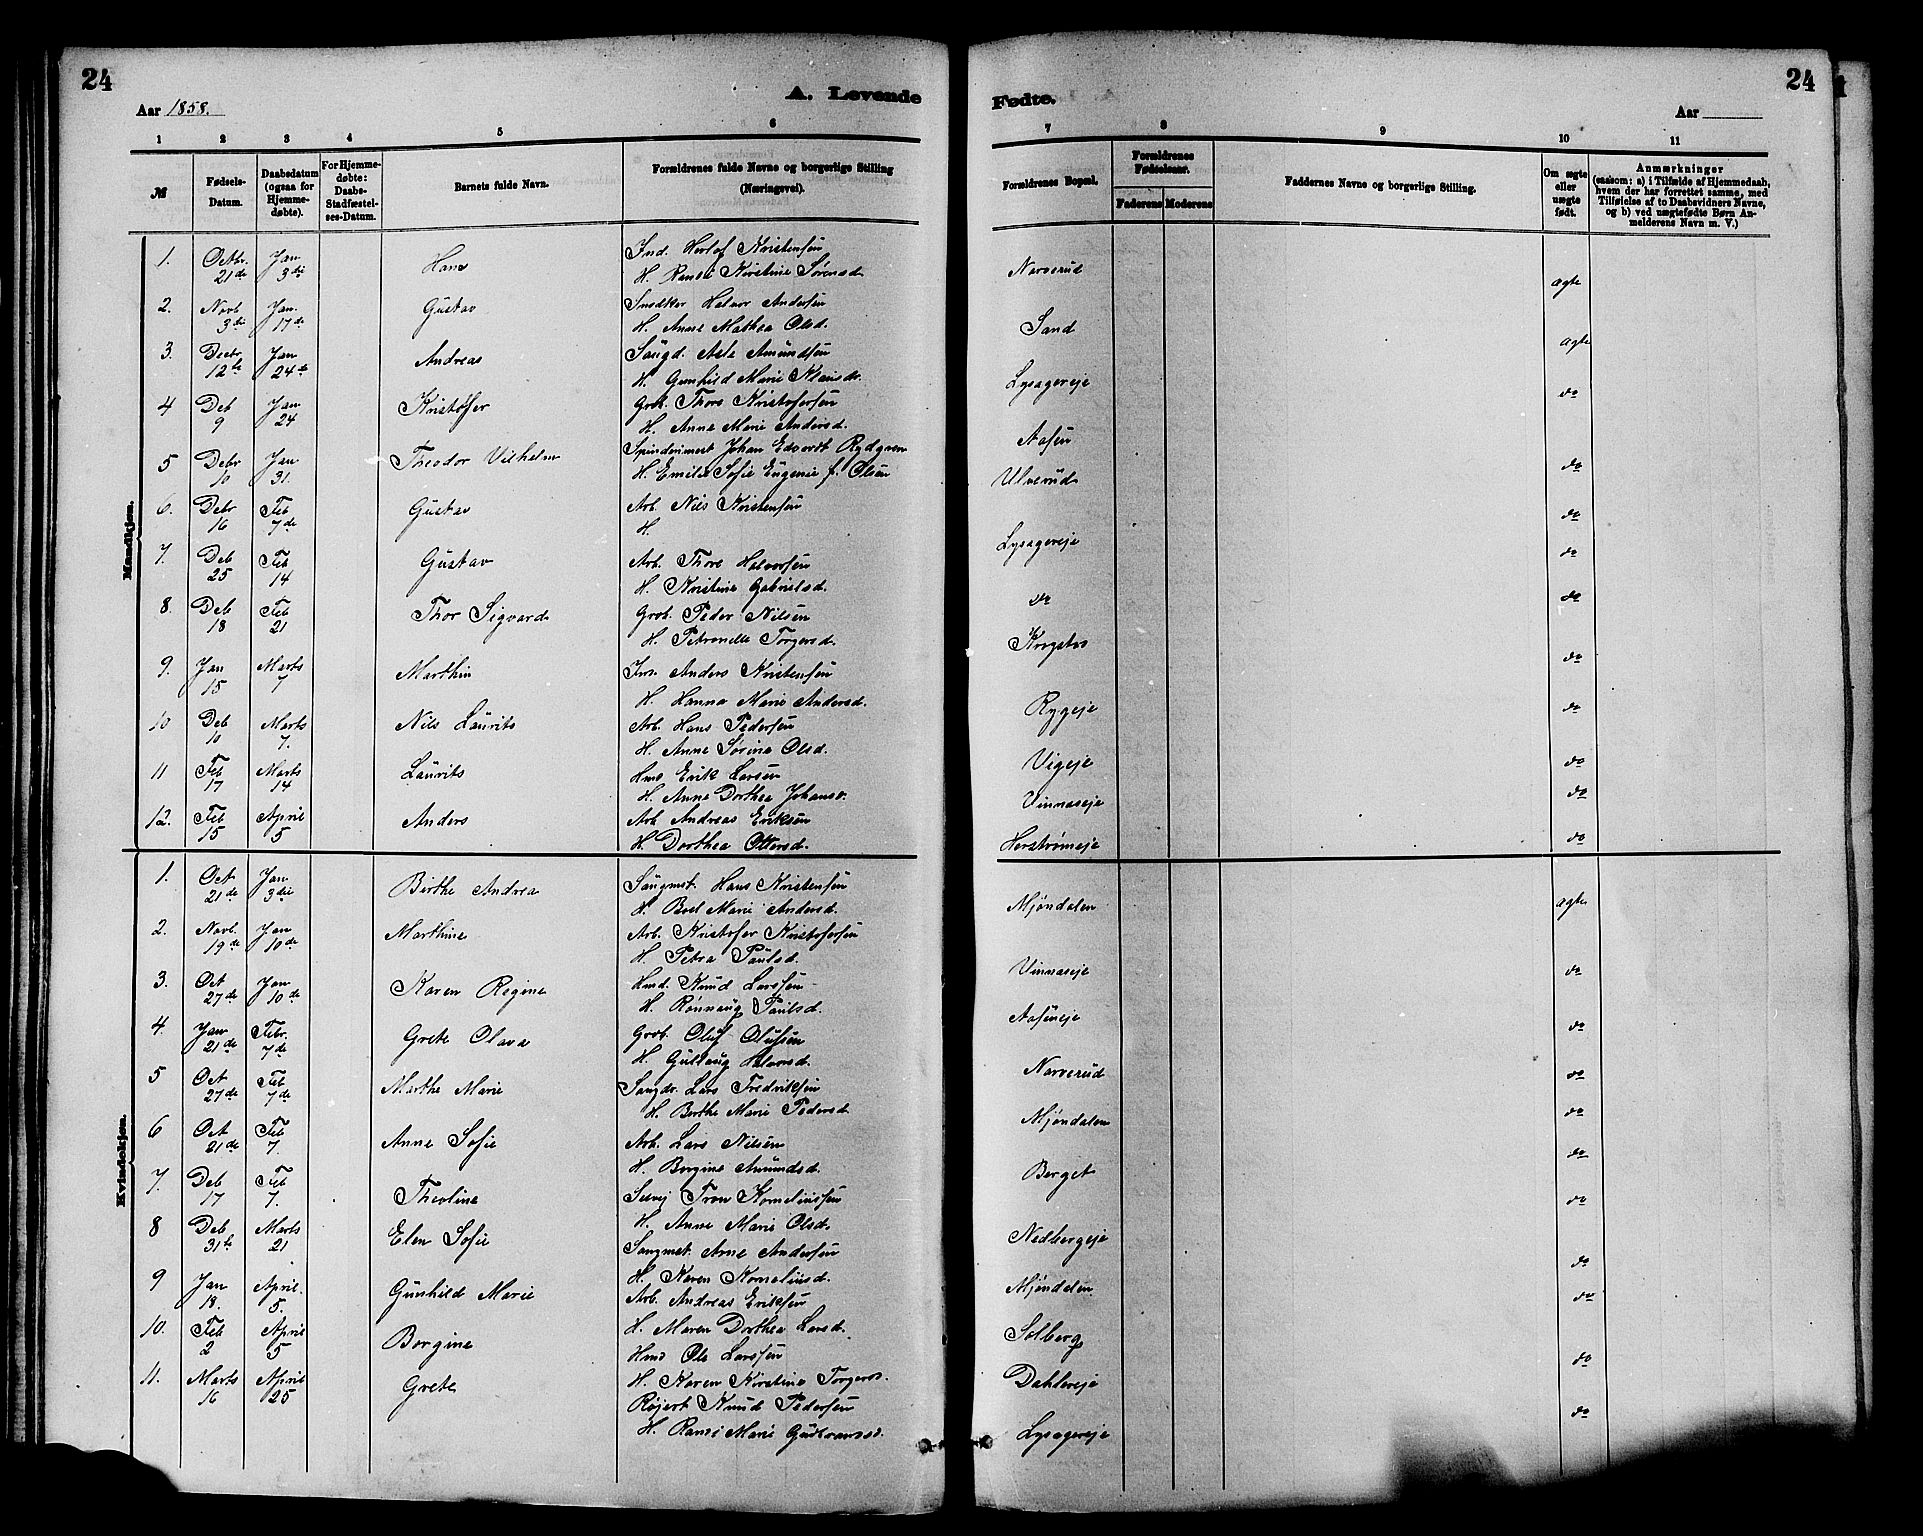 24
Aar 1858.
A. Levende
Fødte.
Aar
24
1 2 3 4 5 6 7 8 9 10 11
№
Fødsels-Datum.
Daabsdatum (ogsaa for Hjemmedøbte).
For Hjemmedøbte: Daabs-Stadfæstelses-Datum.
Barnets fulde Navn.
Forældrenes fulde Navne og borgerlige Stilling (Næringsvei).
Forældrenes Bopæl.
Forældrenes Fødselsaar.
Faderens Moderens
Faddernes Navne og borgerlige Stilling.
Om ægte eller uægte født.
Anmærkninger (saasom: a) i Tilfælde af Hjemmedaab, hvem der har forrettet samme, med Tilføielse af to Daabsvidners Navne, og b) ved uægtefødte Børn Anmelderens Navn m. V.)
Mandkjøn.
1. Octbr. 21de Jan 3die Hans Ind. Herlof Kristensen Narverud ægte
H. Randi Kirstine Sørensd.
2. Novb. 3die Jan. 17de Gustav Snedker Halvor Andersen Sand ægte
H. Anne Mathea Olsd.
3. Decbr. 12te Jan 24de Andreas Saugd. Asle Amundsen Lysagereje do
H. Gunhild Marie Klausdr.
4 Deb 9 Jan 24 Kristofer Grb. Thore Kristofersen Aasen do
H. Anne Marie Andersd.
5 Debr 10 Jan 31. Theodor Vilhelm Spinderimest Johan Edvardt Rydgren Ulverud do
H. Emilie Sofie Eugenie f. Olsen
6. Debr 16 Feb 7de Gustav Arb. Nils Kristensen Lysagereje do
H.
7. Deb 25 Feb 14 Gustav Arb. Thore Halvorsen do do
H. Kristine Gabrielsd.
8. Deb 18 Feb 21 Thor Sigvard Grob. Peder Nilsen Krogstad do
H. Petronelle Torgersd.
9. Jan 15 Marts 7 Marthin Anders Kristensen Rygeje do
H. Hanna Marie Andersd.
10 Deb 10 Marts 7. Nils Laurits Arb. Hans Pedersen Vigeje do
H. Anne Sørine Olsd.
11 Feb 17 Marts 14 Laurits Hmd Erik Larsen Vinnaseje do
H. Anne Dorthea Johansd.
12. Feb 15 April 5 Anders Arb Andreas Eriksen Herstrømeje do
H. Dorthea Ottersd.
Kvindekjøn.
1. Oct 21de Jan 3die Berthe Andrea Saugmst. Hans Kristensen Mjøndalen ægte
H. Boel Marie Andersd.
2. Novb. 19de Jan 10de Marthine Arb. Kristofer Kristofersen Vinnaseje do
H. Petra Paulsd.
3. Oct 27de Jan 10de Karen Regine Hmd. Knud Larssen Aaseneje do
H. Rønnaug Paulsd.
4. Jan 21de Febr. 7de Grete Olava Grob. Oluf Olufsen Narverud do
H. Gullaug Halvorsd.
5 Oct 27de Feb 7de Marthe Marie Saugdr. Lars Fredriksen Mjøndalen do
H. Berthe Marie Pedersd.
6 Oct 21de Feb 7. Anne Sofie Arb. Lars Nilsen Berget do
H. Borgine Amundsd.
7. Deb 17 Feb 7. Theoline Selvej Tron Korneliussen Nedbergeje do
H. Anne Marie Olsd.
8 Deb 31te Marts 21 Elen Sofie Saugmst. Arne Andersen Mjøndalen do
H. Karen Korneliusd.
9 Jan 18. April. 5. Gunhild Marie Arb. Andreas Eriksen Solberg do
H. Maren Dorthea Larsd.
10. Feb 2 April 5 Borgine Hmd Ole Larssen Dahlereje do
H. Karen Kirstine Torgersd.
11. Marts 16 April 25 Grete Røjert Knud Pedersen Lysagereje do
H. Randi Marie Gudbrandsd.